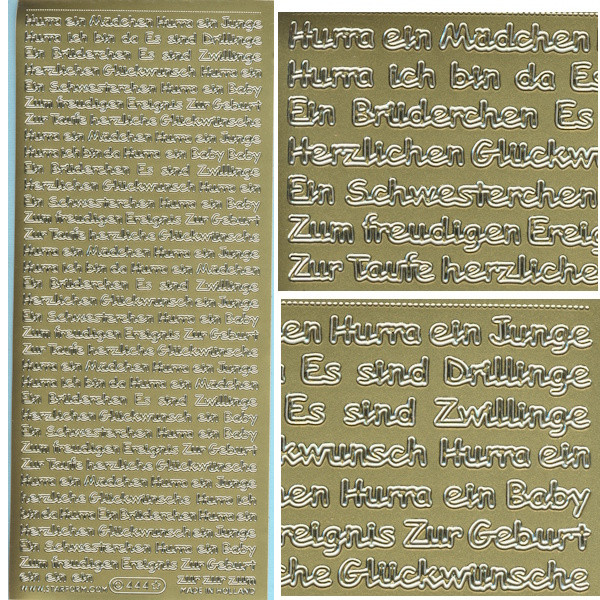 Hurra ein Mädchen Hurra ein Junge
Hurra ich bin da Es sind Drillinge
Ein Brüderchen Es sind Zwillinge
Herzlichen Glückwunsch Hurra ein
Ein Schwesterchen Hurra ein Baby
Zum freudigen Ereignis Zur Geburt
Zur Taufe herzliche Glückwünsche
Hurra ein Mädchen Hurra ein Junge
Hurra ich bin da Hurra ein Baby Baby
Ein Brüderchen Es sind Zwillinge
Herzlichen Glückwunsch Hurra ein
Ein Schwesterchen Hurra ein Baby
Zum freudigen Ereignis Zur Geburt
Zur Taufe herzliche Glückwünsche
Hurra ein Mädchen Hurra ein Junge
Hurra ich bin da Hurra ein Mädchen
Ein Brüderchen Es sind Zwillinge
Herzlichen Glückwunsch Hurra ein
Ein Schwesterchen Hurra ein Baby
Zum freudigen Ereignis Zur Geburt
Zur Taufe herzliche Glückwünsche
Hurra ein Mädchen Hurra ein Junge
Hurra ich bin da Hurra ein Mädchen
Ein Brüderchen Es sind Zwillinge
Herzlichen Glückwunsch ein Baby
Ein Schwesterchen Hurra ein Baby
Zum freudigen Ereignis Zur Geburt
Zur Taufe herzliche Glückwünsche
Hurra ein Mädchen Hurra ein Junge
Herzliche Glückwünsche Hurra ich
bin da Hurra Ein Brüderchen Hurra ein
Herzlichen Glückwunsch Hurra ein
Ein Schwesterchen Hurra ein Baby
Zum freudigen Ereignis Zur Geburt
ein ein ein zur zur Zum
WWW.STARFORM.COM 444 MADE IN HOLLAND
Hurra ein Mädchen
Hurra ich bin da Es
Ein Brüderchen Es
Herzlichen Glückw
Ein Schwesterchen
Zum freudigen Ereig
Zur Taufe herzliche
en Hurra ein Junge
Es sind Drillinge
Es sind Zwillinge
kwunsch Hurra ein
en Hurra ein Baby
reignis Zur Geburt
he Glückwünsche